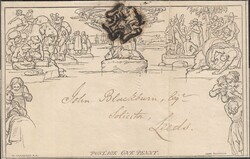 John Blackburn, Esqr
Solicitor
Leeds.
POSTAGE ONE PENNY.